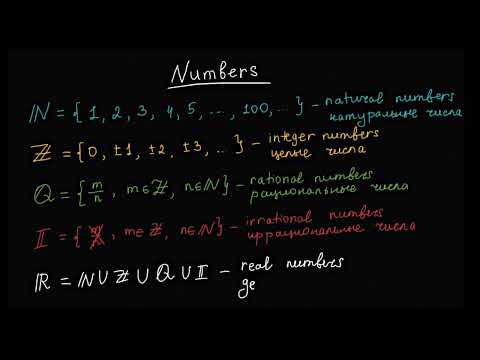 Numbers
ℕ = { 1, 2, 3, 4, 5, ..., 100, ... } – natural numbers
натуральные числа
ℤ = {0, ±1, ±2, ±3, ... } – integer numbers
целые числа
ℚ = { m/n , m∈ℤ, n∈ℕ } – rational numbers
рациональные числа
𝕀 = { m/n , m∈ℤ, n∈ℕ } – irrational numbers
иррациональные числа
ℝ = ℕ ∪ ℤ ∪ ℚ ∪ 𝕀 – real numbers
де